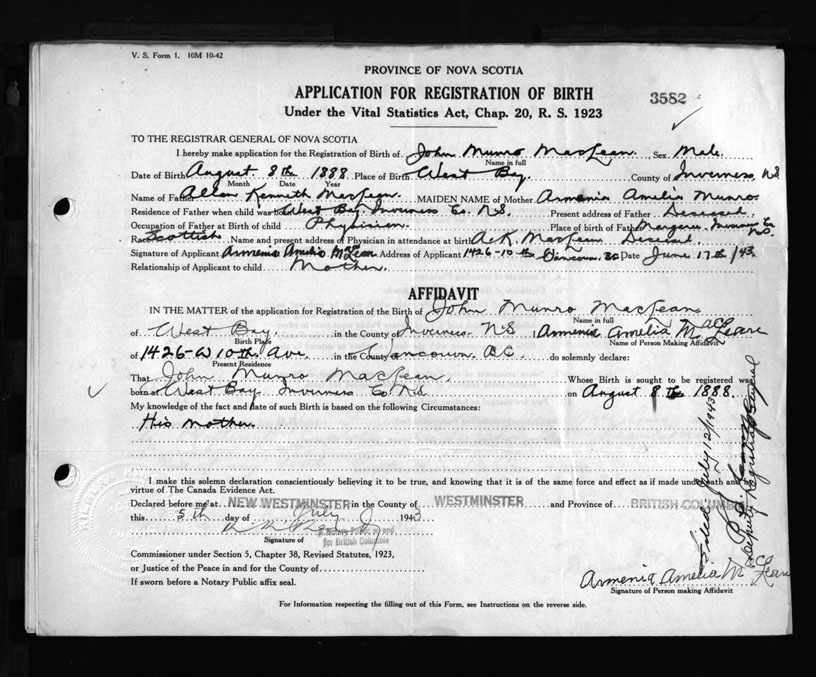 V. S. Form 1. 10M 10-42
PROVINCE OF NOVA SCOTIA
APPLICATION FOR REGISTRATION OF BIRTH
3582
Under the Vital Statistics Act, Chap. 20, R. S. 1923
TO THE REGISTRAR GENERAL OF NOVA SCOTIA
I hereby make application for the Registration of Birth of John Munro MacLean Sex Male
Name in full
Date of Birth August 8th 1888 Place of Birth West Bay. County of Inverness NS
Month Date Year
Name of Father Allan Kenneth MacLean. MAIDEN NAME of Mother Armenia Amelia Munro
Residence of Father when child was born West Bay. Inverness Co. N.S. Present address of Father Deceased
Occupation of Father at Birth of child Physician. Place of birth of Father Margaree Inverness Co NS
Race Scottish Name and present address of Physician in attendance at birth A K. MacLean
Signature of Applicant Armenia Amelia McLean Address of Applicant 1426-10th Vancouver BC Date June 17th /43
Relationship of Applicant to child Mother.
AFFIDAVIT
IN THE MATTER of the application for Registration of the Birth of John Munro MacLean
Name in full
of West Bay. in the County of Inverness N.S. Armenia Amelia MacLean
Birth Place Name of Person Making Affidavit
of 1426-W 10th Ave in the County Vancouver B.C. do solemnly declare:
Present Residence
That John Munro MacLean. Whose Birth is sought to be registered was
born at West Bay Inverness Co. N.S. on August 8th 1888.
My knowledge of the fact and date of such Birth is based on the following Circumstances:
His Mother
I make this solemn declaration conscientiously believing it to be true, and knowing that it is of the same force and effect as if made under oath and
virtue of The Canada Evidence Act.
Declared before me at NEW WESTMINSTER in the County of WESTMINSTER and Province of BRITISH COLUMBIA
this 5th day of July 1943
A Notary Public in and
for British Columbia
Signature of
Commissioner under Section 5, Chapter 38, Revised Statutes, 1923,
or Justice of the Peace in and for the County of
If sworn before a Notary Public affix seal.
Armenia Amelia McLean
Signature of Person making Affidavit
For Information respecting the filling out of this Form, see Instructions on the reverse side.
Filed July 12/1943
Deputy Registrar General